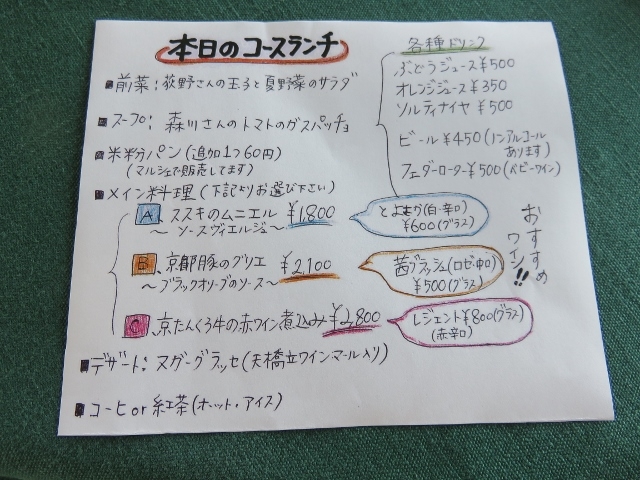 本日のコースランチ
■前菜：荻野さんの玉子と夏野菜のサラダ
■スープ：森川さんのトマトのガスパッチョ
■米粉パン（追加1つ60円）
（マルシェで販売してます）
■メイン料理（下記よりお選び下さい）
A、ススキのムニエル ¥1,800
～ソースヴィエルジュ～
B、京都豚のグリエ ¥2,100
～ブラックオリーブのソース～
C、京たんくろ牛の赤ワイン煮込み ¥2,800
■デザート：ヌガーグラッセ（天橋立ワインマール入り）
■コーヒor紅茶（ホット・アイス）
各種ドリンク
ぶどうジュース¥500
オレンジジュース¥350
ソルティナイヤ ¥500
ビール¥450（ノンアルコール
あります）
フェダーローター¥500（ベビーワイン）
おすすめ
ワイン!!
とよまめ（白・辛口）
¥600（グラス）
茜ブラッシュ（ロゼ・中口）
¥500（グラス
レジェント¥800（グラス）
（赤辛口）